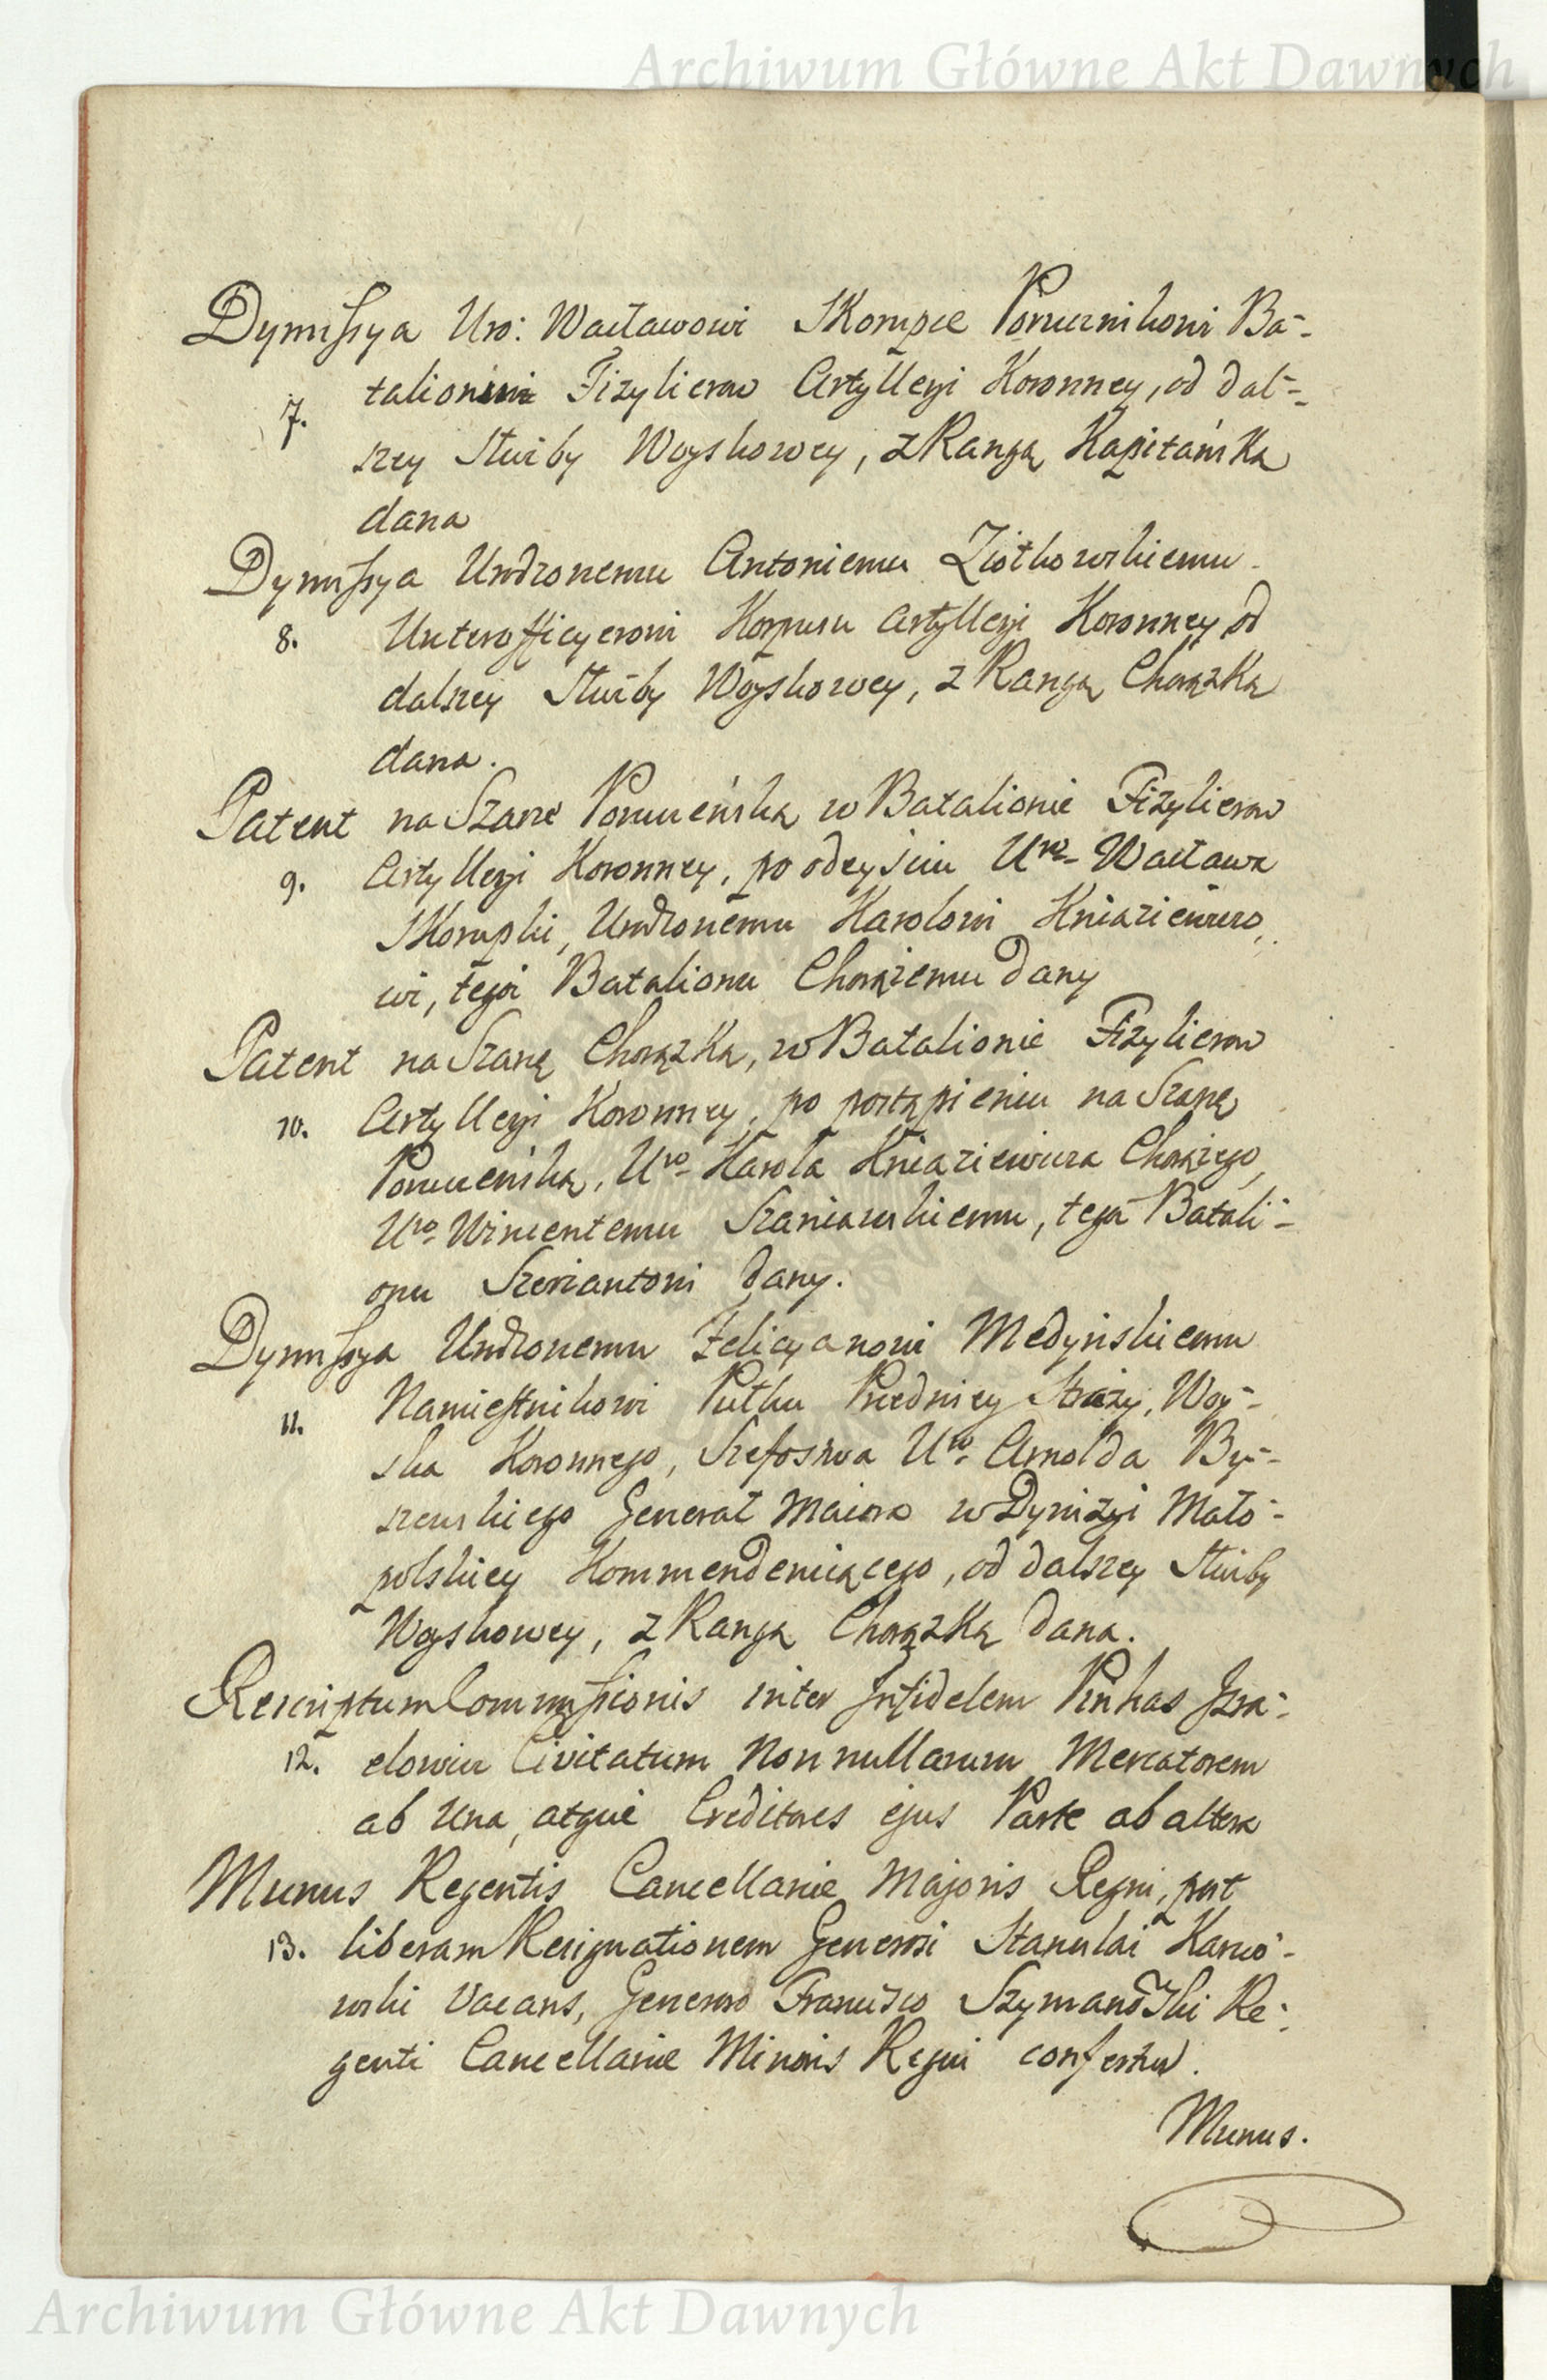 Archiwum Główne Akt Dawnych
Dymissya Uro: Wacławowi Skorupce Porucznikowi Ba-
7. talionu Fizylierow Artylleryi Koronney, od dal-
szey Służby Woyskowey, z Rangą Kapitańską
dana
Dymissya Urodzonemu Antoniemu Ziołkowskiemu
8. Unterofficyerowi Korpusu Artylleryi Koronney od
dalszey Służby Woyskowey, z Rangą Chorążką
dana.
Patent na Szarże Porucznśką w Batalionie Fizylierow
9. Artylleryi Koronney, po odeysciu Uro- Wacława
Skorupki, Urodzonemu Karolowi Kniaziewiczo,
wi, tegoż Batalionu Chorążemu dany
Patent na Szarżę Chorążką, w Batalionie Fizylierow
10. Artylleryi Koronney, po postąpieniu na Szarżę
Poruczeńską, Uro- Karola Kniaziewicza Chorążego,
Uro- Wincentemu Szaniawskiemu, tegoż Batali-
onu Szerżantowi dany.
Dymissya Urodzonemu Felicyanowi Medyńskiemu
11. Namiestnikowi Pułku Przedniey Straży, Woy-
ska Koronnego, Szefostwa Uro- Arnolda By-
szewskiego Generał Maiora w Dywizyi Mało-
polskiey Kommenderuiącego, od dalszey Służby
Woyskowey, z Rangą Chorążką dana.
Rescriptum Commissionis inter Infidelem Pinkas Izra-
12. elowicz Civitatum Nonnullarum Mercatorem
ab Una, atque Creditores ejus Parte ab altera
Munus Regentis Cancellariæ Majoris Regni, post
13. liberam Resignationem Generosi Stanislai Karwo-
wski Vacans, Generoso Francisco Szymanowski Re-
genti Cancellariæ Minoris Regni confertur.
Munus.
Archiwum Główne Akt Dawnych